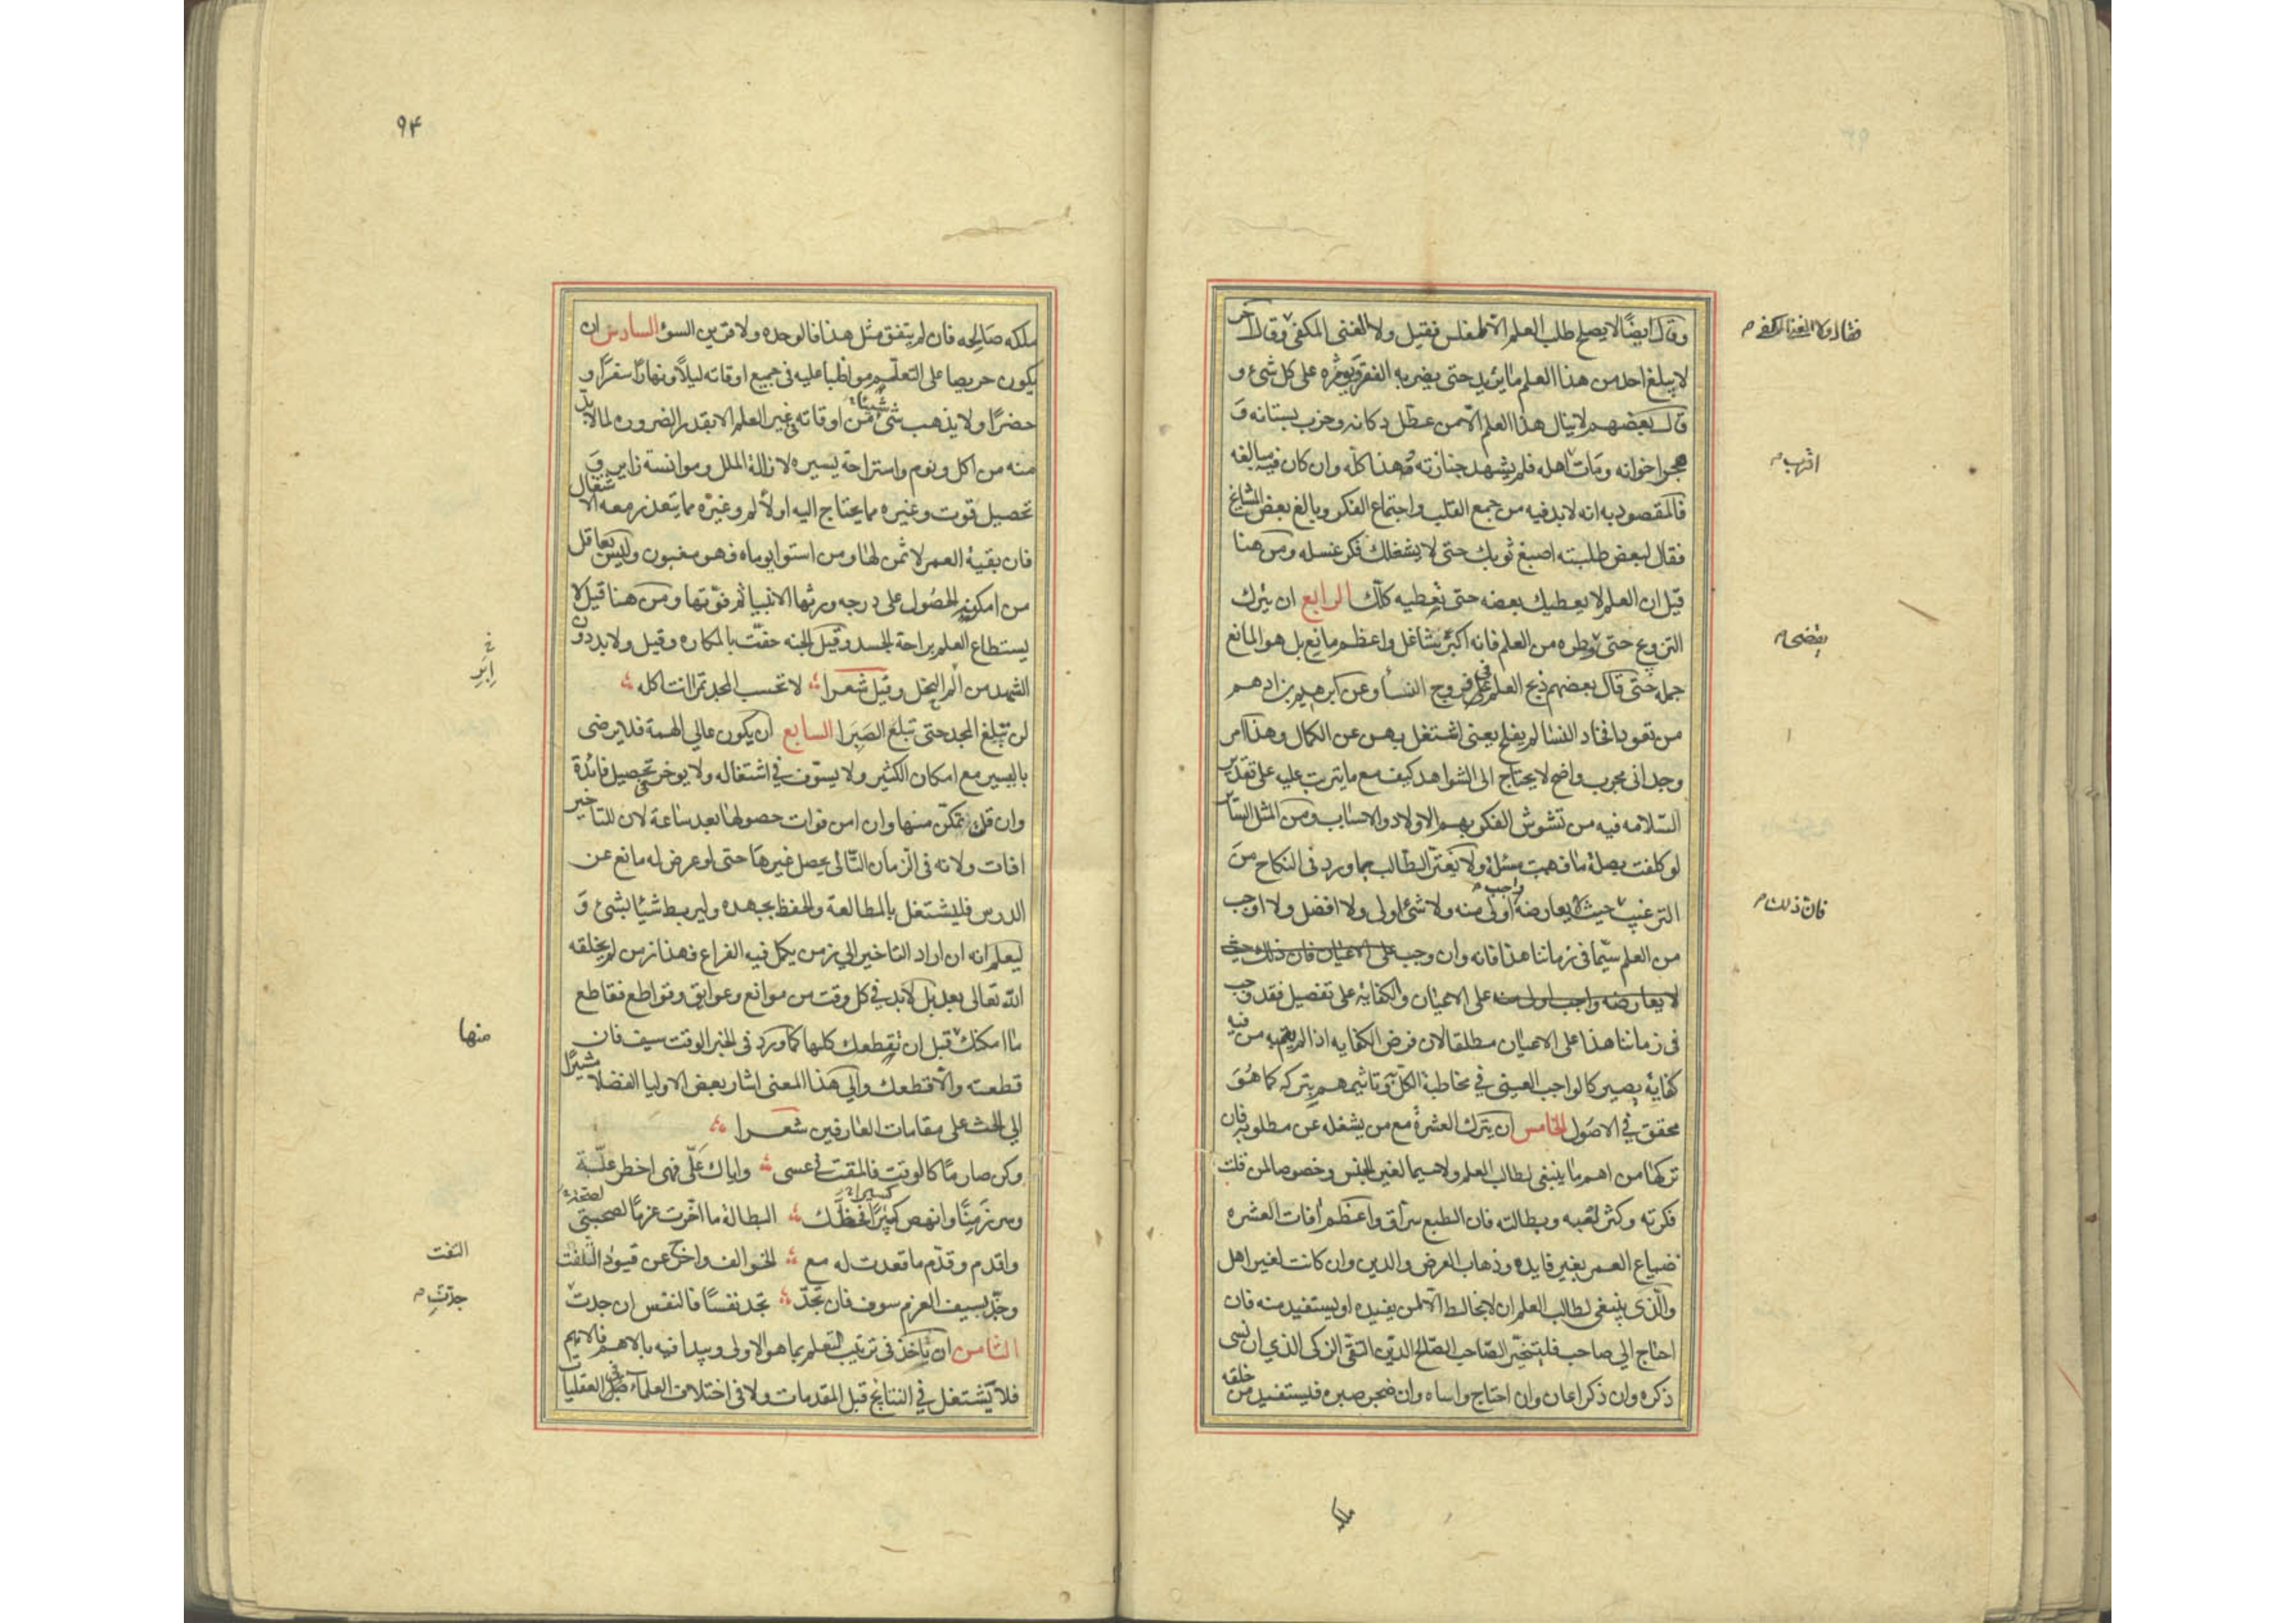 وقال ايضًا لا يصلح طلب العلم الا لمفلس فقيل ولا الغني المكفي وقال آخر
فقال ولا الغنا المكفي م
لا يبلغ احد من هذا العلم ما يريد حتى يضر به الفقر ويؤثره على كل شيء و
قال بعضهم لا ينال هذا العلم الا من عطل دكانه وخرب بستانه و
هجر اخوانه ومات اهله فلم يشهد جنازته وهذا كله وان كان فيه مبالغه
اقرب م
فالمقصود به انه لا بد فيه من جمع القلب واجتماع الفكر وبالغ بعض المشايخ
فقال لبعض طلبته اصبغ ثوبك حتى لا يشغلك فكر غسله ومن هنا
قيل ان العلم لا يعطيك بعضه حتى تعطيه كلك الرابع ان يترك
التزويج حتى وطره من العلم فانه اكبر شاغل واعظم مانع بل هو المانع
يقضي م
جمله حتى قال بعضهم ذبح العلم في فروج النساء وعن ابرهيم بن ادهم
من تعود افخاذ النساء لم يفلح يعني اشتغل بهن عن الكمال وهذا امر
وجداني مجرب واضح لا يحتاج الى الشواهد كيف مع ما يترتب عليه على تقدير
السلامه فيه من تشوش الفكر بهم الاولاد والاسباب ومن المثل الساير
لو كلفت بصلة ما فهمت مسئلة ولا يغتر الطالب بما ورد في النكاح من
الترغيب حيث لا يعارضه واجب م اولى منه ولا شئ اولى ولا افضل ولا اوجب
فان ذلك م
من العلم سيما في زماننا هذا فانه وان وجب على الاعيان فان ذلك حيث
لا يعارضه واجب اولى منه على الاعيان والكفاية على تفصيل فقد وجب
في زماننا هذا على الاعيان مطلقا لان فرض الكفايه اذا لم يقم به من فيه
كفاية يصير كالواجب العيني في مخاطبة الكل وتاثيمهم بتركه كما هو
محقق في الاصول الخامس ان يترك العشرة مع من يشغله عن مطلوبه فان
تركها من اهم ما ينبغي لطالب العلم ولا سيما لغير الجنس وخصوصا لمن قلت
فكرته وكثر لعبه وبطالته فان الطبع سراق واعظم افات العشره
ضياع العمر بغير فايده وذهاب العرض والدين وان كانت لغير اهل
والذي ينبغي لطالب العلم ان لا يخالط الا لمن يفيده او يستفيد منه فان
احتاج الي صاحب فليتخير الصاحب الصالح الدين التقي الزكي الذي ان نسى
ذكره وان ذكر اعان وان احتاج واساه وان ضجر صبره فليستفيد من خلقه
ملكه
۹۴
ملكه صالحه فان لم يتفق مثل هذا فالوحده ولا قرين السوء السادس ان
يكون حريصا على التعلم مواظبا عليه في جميع اوقاته ليلا ونهارا سفرا و
حضرا ولا يذهب شئ شيئا من اوقاته في غير العلم الا بقدر الضروره لما لا بد
منه من اكل ونوم واستراحة يسيره لازالة الملل وموانسة زاير و
تحصيل قوت وغيره مما يحتاج اليه او لألم وغيره مما يتعذر معه الاشتغال
فان بقية العمر لا ثمن لها ومن استوا يوماه فهو مغبون وليس بعاقل
من امكنه الحصول على درجه ورثها الانبيا ثم فوتها ومن هنا قيل لا
يستطاع العلم براحة الجسد وقيل الجنه حفت بالمكاره وقيل ولا بد دون
الشهد من الم النحل وقيل شعرا لا تحسب المجد تمرا انت اكله
ابر خ
لن تبلغ المجد حتى تبلغ الصبرا السابع ان يكون عالي الهمة فلا يرضى
باليسير مع امكان الكثير ولا يسوف في اشتغاله ولا يوخر تحصيل فائدة
وان قلت تمكن منها وان امن فوات حصولها بعد ساعة لان للتاخير
افات ولانه في الزمان الثاني يحصل غيرها حتى لو عرض له مانع عن
الدرس فليشتغل بالمطالعة والحفظ بجهده ولا يربط شيئا بشئ و
ليعلم انه ان اراد التاخير الي زمن يكمل فيه الفراغ فهذا زمن لم يخلقه
الله تعالى بعد بل لا بد في كل وقت من موانع وعوايق وقواطع فقاطع
ما امكنك قبل ان تقطعك كلها كما ورد في الخبر الوقت سيف فان
منها
قطعته والا قطعك والي هذا المعنى اشار بعض الاوليا الفضلا مشيرا
الي الحث على مقامات العارفين شعرا
وكن صارما كالوقت فالمقت في عسى واياك على فهي اخطر علة
وسر زمنا وانهض كسيرا فحظك البطالة ما اخرت عزما لصحبتي
واقدم وقدم ما قعدت له مع الخوالف واخرج عن قيود التلفت
التفت
وجذ بسيف العزم سوف فان تجد تجد نفسا فالنفس ان جدت
جدّتِ م
الثامن ان ياخذ في ترتيب التعلم بما هو الاولى ويبدا فيه بالاهم فالاهم
فلا يشتغل في النتايج قبل المقدمات ولا في اختلاف العلماء في العقليات